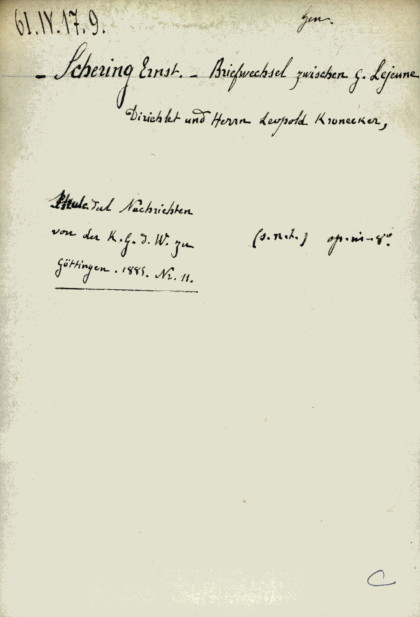 61.IV.17.9.
Gen.
- Schering Ernst. - Briefwechsel zwischen G. Lejeune
Dirichlet und Herrn Leopold Kronecker,
dal Nachrichten
von der K. G. d. W. zu
Göttingen. 1885. Nr. 11.
(s.n.t.) op. in-8°
C